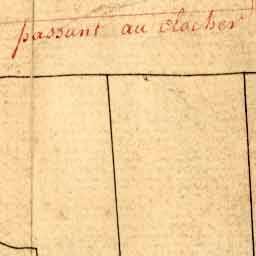 passant au clocher